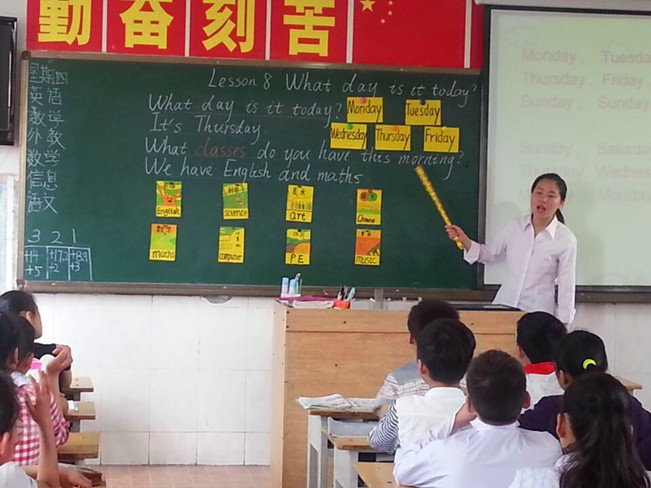 勤奋刻苦
星期四
英语
数学
外教
数学
信息
语文
3 2 1
+5 +2 +3
Lesson 8 What day is it today?
What day is it today?
It's Thursday.
Monday Tuesday
Wednesday Thursday Friday
What classes do you have this morning?
We have English and maths
English science art Chinese
maths computer P.E music
Monday , Tuesda
Thursday , Friday
Sunday , Sunday
Sunday Saturda
Thursday Wednes
Monda